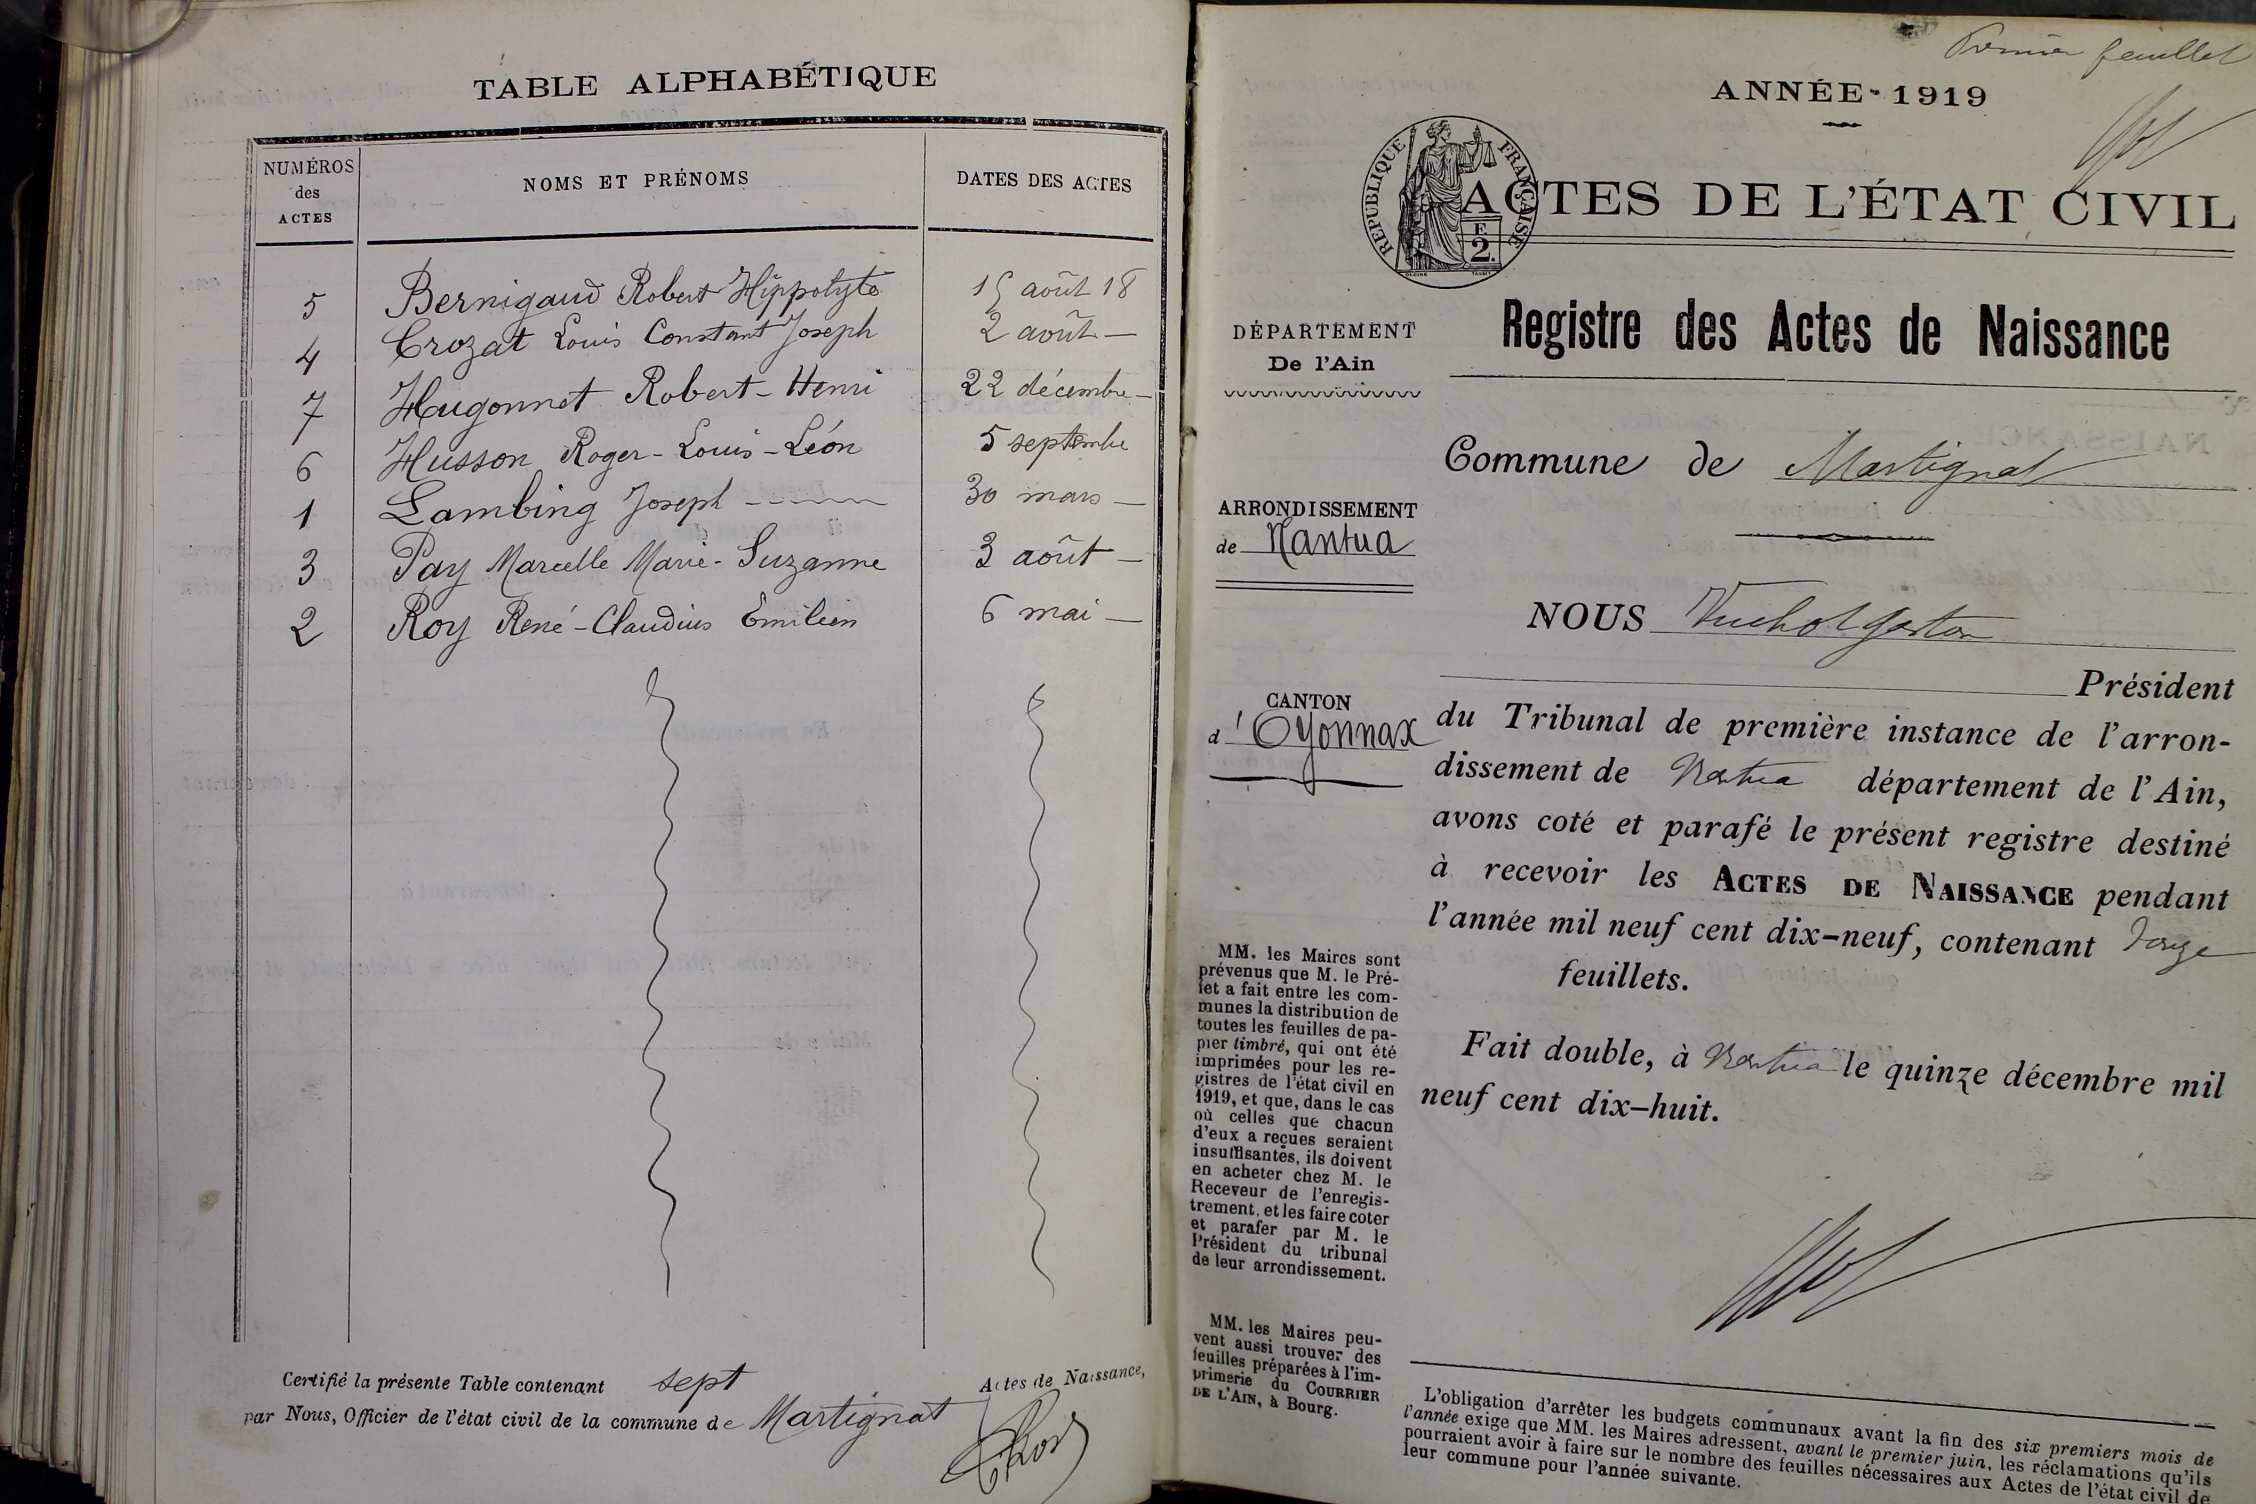 TABLE ALPHABÉTIQUE
NUMÉROS des ACTES	NOMS ET PRÉNOMS	DATES DES ACTES
5	Bernigaud Robert Hippolyte	15 août 18
4	Crozat Louis Constant Joseph	2 août —
7	Hugonnet Robert-Henri	22 décembre —
6	Husson Roger-Louis-Léon	5 septembre
1	Lambing Joseph	30 mars —
3	Pay Marcelle Marie-Suzanne	3 août —
2	Roy René-Claudius Emilien	6 mai —
Certifié la présente Table contenant sept Actes de Naissance,
par Nous, Officier de l'état civil de la commune de Martignat
Premier feuillet
ANNÉE 1919
RÉPUBLIQUE FRANÇAISE
E
2.
ACTES DE L'ÉTAT CIVIL
Registre des Actes de Naissance
DÉPARTEMENT
De l'Ain
Commune de Martignat
ARRONDISSEMENT
de Nantua
NOUS
Président
CANTON
d'Oyonnax
du Tribunal de première instance de l'arron-
dissement de Nantua département de l'Ain,
avons coté et parafé le présent registre destiné
à recevoir les ACTES DE NAISSANCE pendant
l'année mil neuf cent dix-neuf, contenant douze
feuillets.
Fait double, à Nantua le quinze décembre mil
neuf cent dix-huit.
MM. les Maires sont
prévenus que M. le Pré-
fet a fait entre les com-
munes la distribution de
toutes les feuilles de pa-
pier timbré, qui ont été
imprimées pour les re-
gistres de l'état civil en
1919, et que, dans le cas
où celles que chacun
d'eux a reçues seraient
insuffisantes, ils doivent
en acheter chez M. le
Receveur de l'enregis-
trement, et les faire coter
et parafer par M. le
Président du tribunal
de leur arrondissement.
MM. les Maires peu-
vent aussi trouver des
feuilles préparées à l'im-
primerie du COURRIER
DE L'AIN, à Bourg.
L'obligation d'arrêter les budgets communaux avant la fin des six premiers mois de
l'année exige que MM. les Maires adressent, avant le premier juin, les réclamations qu'ils
pourraient avoir à faire sur le nombre des feuilles nécessaires aux Actes de l'état civil de
leur commune pour l'année suivante.